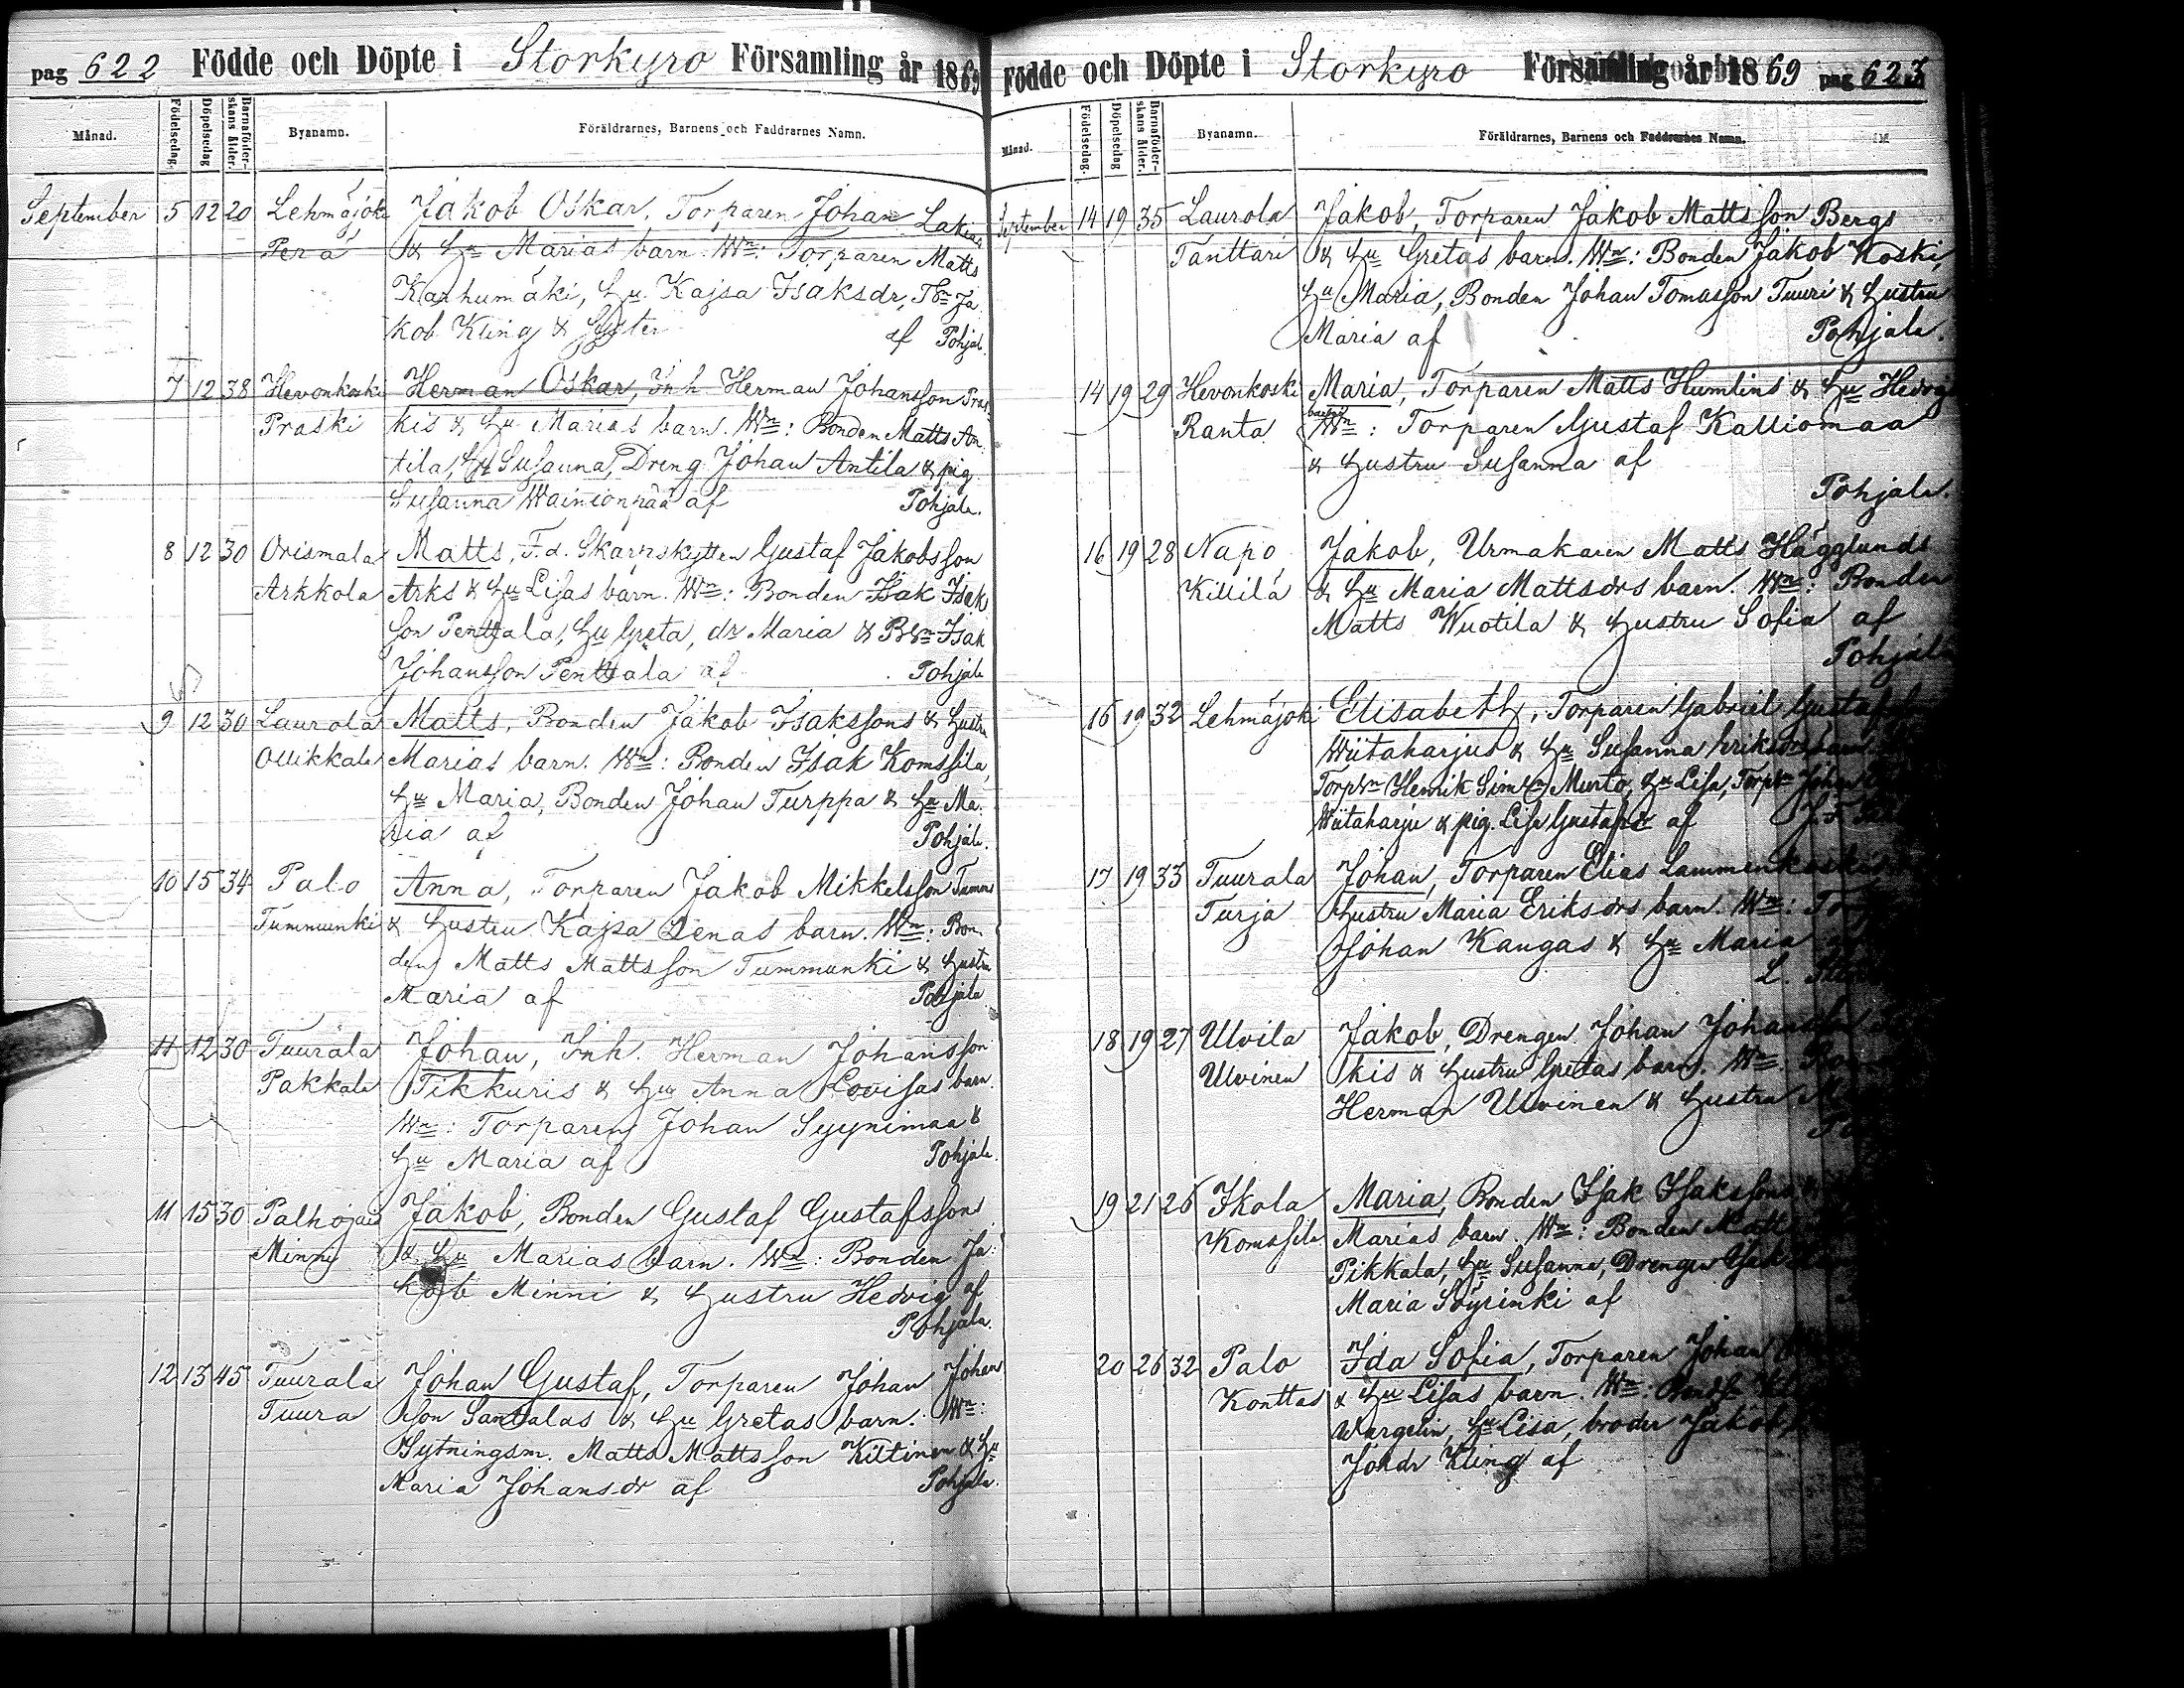 pag 622 Födde och Döpte i Storkyro Församling år 1869
Månad. Födelsedag. Döpelsedag Barnaföder-skans ålder. Byanamn. Föräldrarnes, Barnens och Faddrarnes Namn.
September 5 12 20 Lehmäjoki Jakob Oskar, Torparen Johan Lakias
Perä & Hu Marias barn. Wn: Torparen Matts
Karhumäki, Hu Kajsa Isaksdr, Ja
kob Kling & Syster af Pohjala.
7 12 38 Hevonkoski Herman Oskar, Inh Herman Johansson Pras
Praski kis & Hu Marias barn. Wn: Bonden Matts An
tila, Hu Susanna, Dreng Johan Antila & pig.
Susanna Wainionpää af Pohjala.
8 12 30 Orismala Matts, F.d. Skarpskytten Gustaf Jakobsson
Arkkola Arks & Hu Lisas barn. Wn: Bonden Isak Isak
son Penttala, Hu Greta, dr Maria & Isak
Johansson Penttala af Pohjala
9 12 30 Laurola Matts, Bonden Jakob Isakssons & Hustru
Ollikkala Marias barn. Wn: Bonden Isak Komssila,
Hu Maria, Bonden Johan Turppa & Hu Ma
ria af Pohjala.
10 15 34 Palo Anna, Torparen Jakob Mikkelsson
Tummunki & Hustru Kajsa Lenas barn. Wn: Bon
den Matts Mattsson Tummunki & Hustru
Maria af Pohjala
11 12 30 Tuurala Johan, Inh. Herman Johansson
Pakkala Tikkuris & Hu Anna Lovisas barn.
Wn: Torparen Johan Syynimaa &
Hu Maria af Pohjala.
11 15 30 Palhojais Jakob, Bonden Gustaf Gustafssons
Minni & Hu Marias barn. Wn: Bonden Ja
kob Minni & Hustru Hedvig af
Pohjala.
12 13 45 Tuurala Johan Gustaf, Torparen Johan Johan
Tuura son Santalas & Hu Gretas barn. Wn:
Sytningsm. Matts Mattsson Kiltinen & Hu
Maria Johansdr af Pohjala.
Födde och Döpte i Storkyro Församling år 1869 pag 623
Månad. Födelsedag. Döpelsedag Barnaföder-skans ålder. Byanamn. Föräldrarnes, Barnens och Faddrarnes Namn.
September 14 19 35 Laurola Jakob, Torparen Jakob Mattsson Bergs
Tanttari & Hu Gretas barn. Wn: Bonden Jakob Koski,
Hu Maria, Bonden Johan Tomasson Tuuri & Hustru
Maria af Pohjala.
14 19 29 Hevonkoski Maria, Torparen Matts Humlins & Hu Hedvigs
Ranta barn Wn: Torparen Gustaf Kalliomaa
& Hustru Susanna af
Pohjala.
16 19 28 Napo Jakob, Urmakaren Matts Hägglunds
Killilä & Hu Maria Mattsdrs barn. Wn: Bonden
Matts Wuotila & Hustru Sofia af
Pohjala
16 19 32 Lehmäjoki Elisabeth, Torparen Gabriel Gustafs
Wiitaharjus & Hu Susanna Eriksdrs barn
Henrik Murto, Hu Lisa, Johan
Wiitaharju & pig. Lisa Gustafsdr af
17 19 33 Tuurala Johan, Torparen Elias Lammenkoskis
Turja Hustru Maria Eriksdrs barn. Wn:
Johan Kangas & Hu Maria
18 19 27 Ulvila Jakob, Drengen Johan Johansson
Ulvinen kis & Hustru Gretas barn. Wn:
Herman Ulvinen & Hustru
19 21 26 Ikola Maria, Bonden Isak Isakssons
Komssila Marias barn. Wn: Bonden Matts
Pikkala, Hu Susanna, Drengen Isak
Maria Söyrinki af
20 26 32 Palo Ida Sofia, Torparen Johan
Konttas & Hu Lisas barn. Wn:
Wargelin, Hu Lisa, broder Jakob,
Johdr Kling af